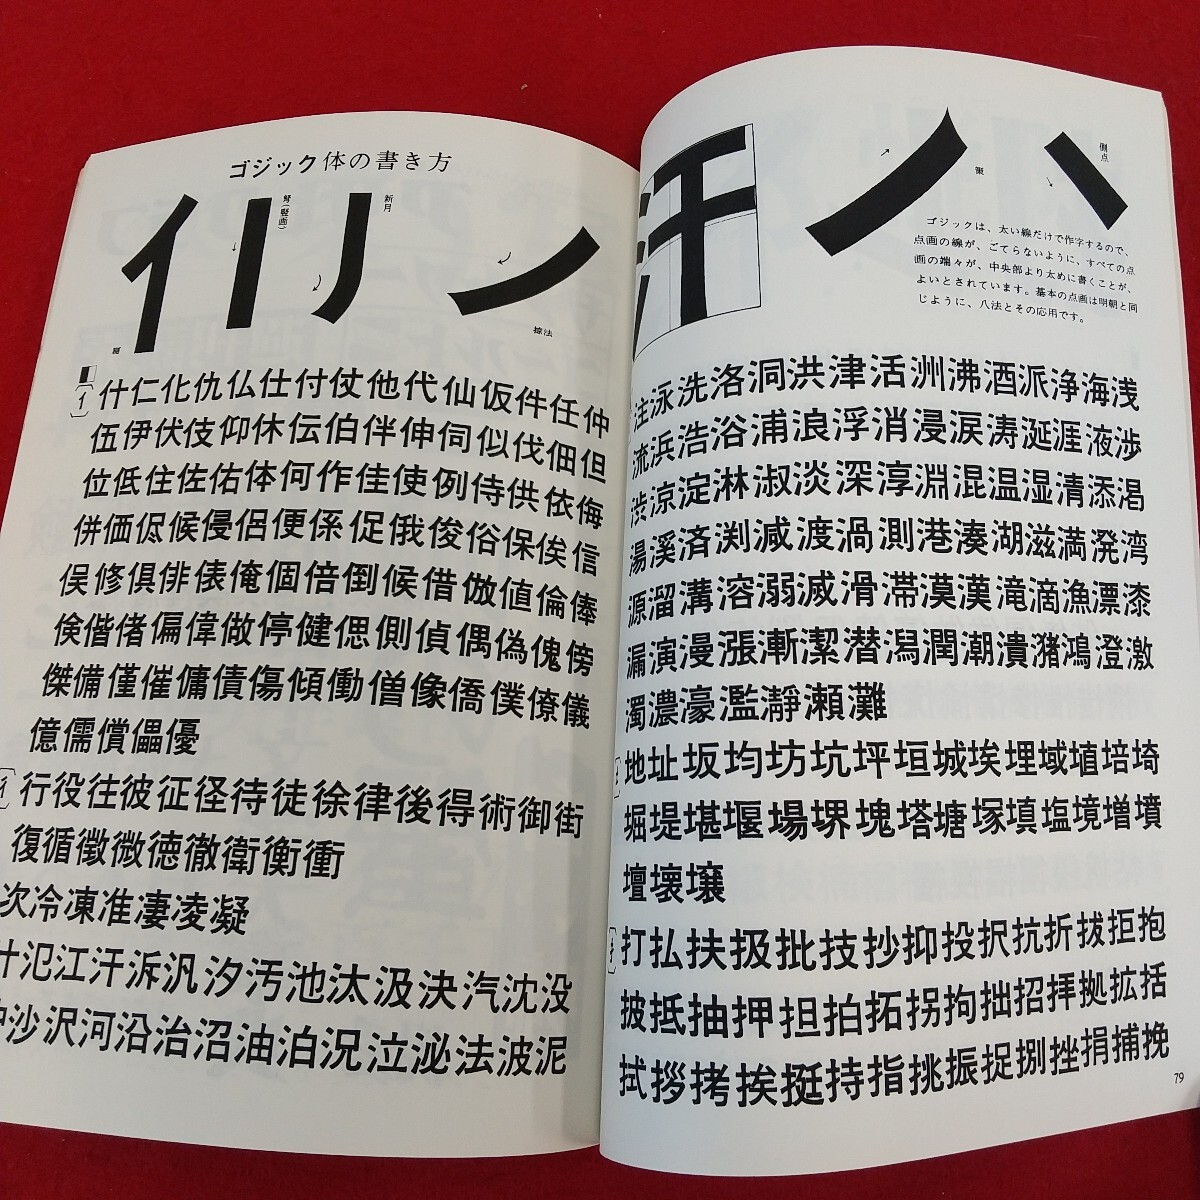 ゴジック体の書き方
弩(竪画)
新月
掠法
什仁化仇仏仕付仗他代仙仮件任仲
伍伊伏伎仰休伝伯伴伸伺似伐佃但
位低住佐佑体何作佳使例侍供依侮
併価侭候侵侶便係促俄俊俗保俟信
俣修倶俳俵俺個倍倒候借倣値倫俸
倹偕偖偏偉做停健偲側偵偶偽傀傍
傑備僅催傭債傷傾働僧像僑僕僚儀
億儒償儡優
行役往彼征径待徒徐律後得術御街
復循徴微徳徹衛衡衝
次冷凍准凄凌凝
汁氾江汗泝汎汐汚池汰汲決汽沈没
沖沙沢河沿治沼油泊況泣泌法波泥
汗
策
側点
ゴジックは、太い線だけで作字するので、
点画の線が、ごてらないように、すべての点
画の端々が、中央部より太めに書くことが、
よいとされています。基本の点画は明朝と同
じように、八法とその応用です。
注泳洗洛洞洪津活洲沸洒派浄海浅
流浜浩浴浦浪浮消浸涙涛涎涯液渉
渋涼淀淋淑淡深淳淵混温湿清添渇
湯溪済渕減渡渦測港湊湖滋満溌湾
源溜溝溶溺滅滑滞漠漢滝滴漁漂漆
漏演漫漲漸潔潜潟潤潮潰潴鴻澄激
濁濃濠濫瀞瀬灘
地址坂均坊坑坪垣城埃埋域埴培埼
堀堤堪堰場堺塊塔塘塚填塩境増墳
壇壊壌
打払扶扱批技抄抑投択抗折抜拒抱
披抵抽押担拍拓拐拘拙招拝拠拡括
拭拶拷挨挺持指挑振捉捌挫捐捕挽
79